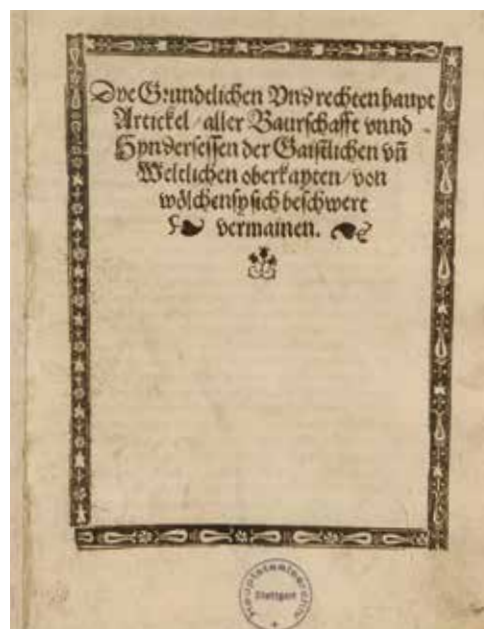 Dye Grundtlichen Vnd rechten haupt
Artickel / aller Baurschafft vnnd
Hyndersessen der Gaistlichen vñ
Weltlichen oberkayten / von
wölchen sy sich beschwert
vermainen.
Hauptstaatsarchiv
Stuttgart